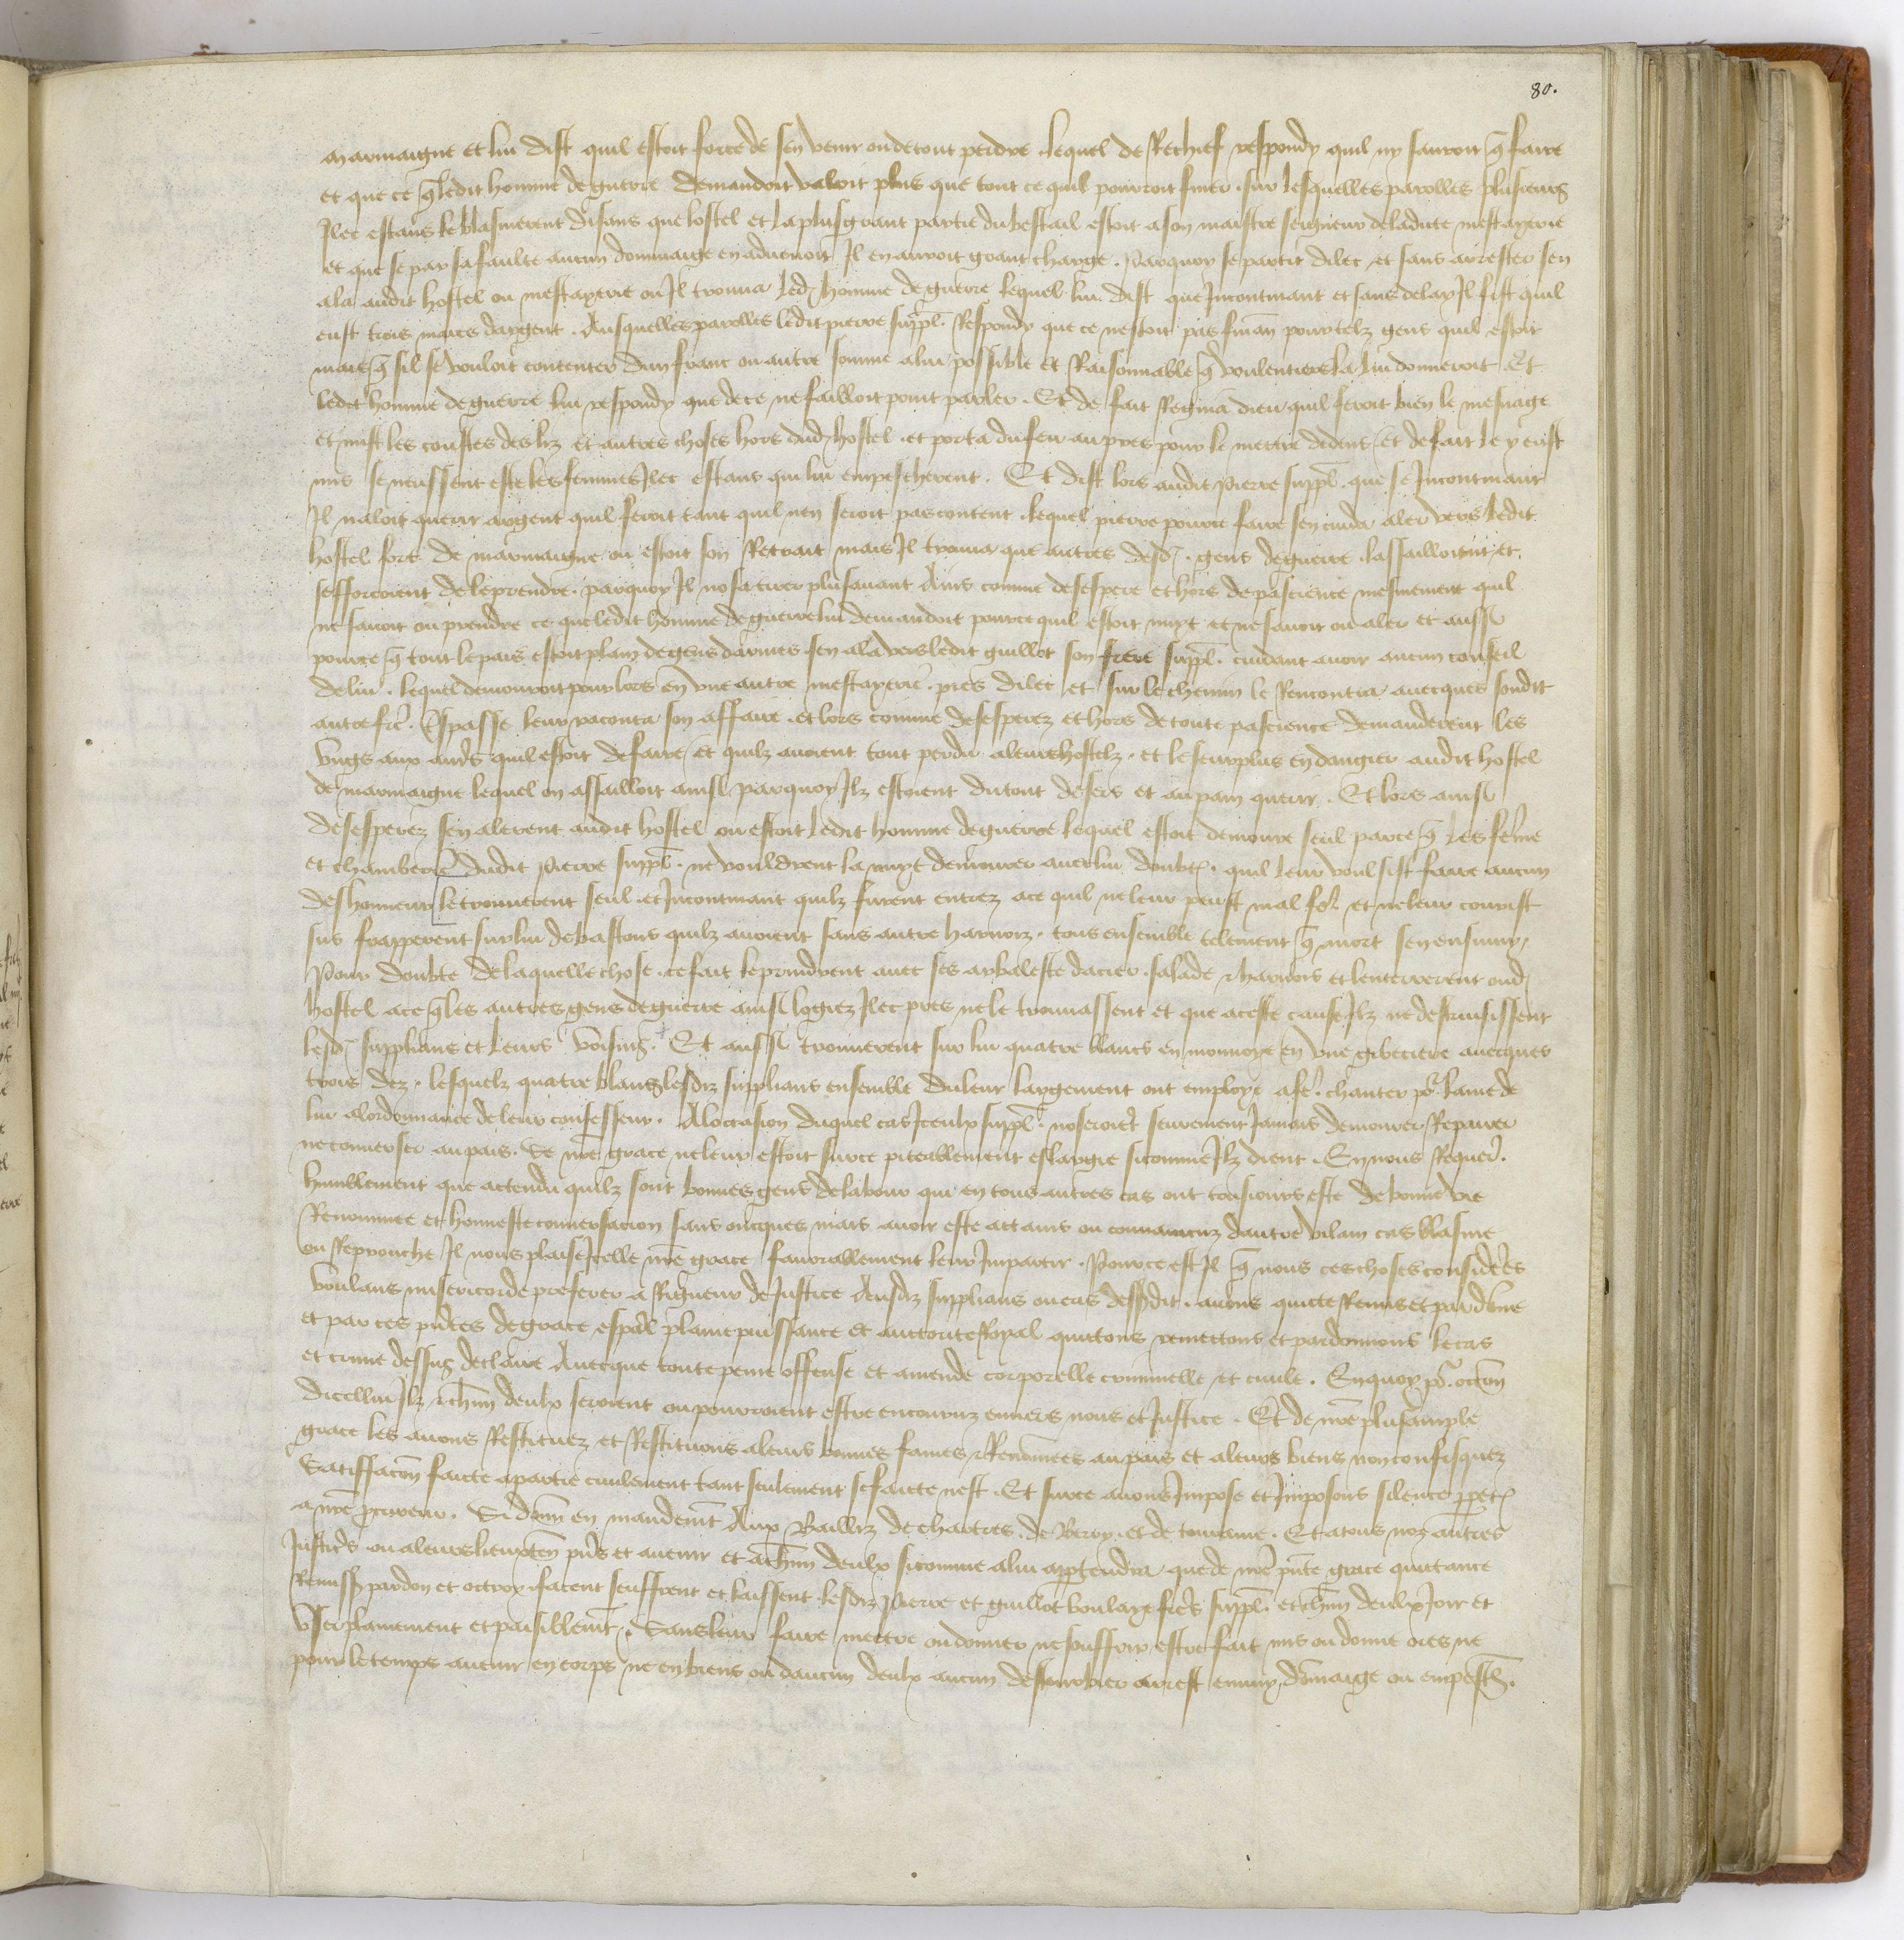 80.
marmaigne et lui dist quil estoit force de sen venir ou de tout perdre . lequel de Rechief respondy quil ny sauroit q̃ faire
et que ce q̃ ledit homme de guerre demandoit valoit plus que tout ce quil pourroit finer . sur lesquelles parolles plusieurs
Ilec estans le blasmerent disans que lostel et la plus grant partie du bestail estoit a son maistre seigneur de ladicte mestayerie
et que se par sa faulte aucun dommaige en advenoit Il en auroit grant charge . Parquoy se partit dilec et sans arrester sen
ala audit hostel ou mestayerie ou Il trouva led homme de guerre lequel lui dist que Incontinant et sans delay Il fist quil
eust trois marcs dargent . Ausquelles parolles ledit pierre suppl. Respondy que ce nestoit pas finan pour telz gens quil estoit
mais q̃ sil se vouloit contenter dun franc ou autre somme a lui possible et Raisonnable q̃ voulentiers la lui donneroit Et
ledit homme de guerre lui respondy que de ce ne failloit point parler . Et de fait Regnia dieu quil feroit bien le mesnage
et mist les coustes des liz et autres choses hors dud hostel . et porta du feu aupres pour le mettre dedens et de fait le y eust
mis se neussent este les femmes Ilec estans qui lui empescherent . Et dist lors audit Pierre suppl. que se Incontinant
Il naloit querir argent quil feroit tant quil nen seroit pas content . lequel pierre pour ce faire sen cuida aler vers ledit
hostel fort de marmaigne ou estoit son Retrait mais Il trouva que autres desd . gens de guerre lassailloient et
sefforcoient de le prendre . parquoy Il nosa tirer plus avant Ains comme desespere et hors de pascience mesmement quil
ne savoit ou prendre ce que ledit homme de guerre lui demandoit pource quil estoit nuyt et ne savoit ou aler et aussi
pource q̃ tout le pais estoit plain de gens darmes sen ala vers ledit guillot son frere suppl. cuidant avoir aucun conseil
de lui . lequel demouroit pour lors en une autre mestayerie pres dilec et sur le chemin le Rencontra avecques sondit
autre frẽ . Trespasse leur raconta son affaire . et lors comme desesperez et hors de toute pascience demanderent les
ungs aux aut̃s quil estoit de faire et quilz avoient tout perdu a leurs hostelz . et le seurplus en dangier audit hostel
de marmaigne lequel on assailloit ainsi parquoy Ilz estoient du tout desers et au pain querir . Et lors ainsi
desesperez sen alerent audit hostel ou estoit ledit homme de guerre lequel estoit demoure seul parce q̃ les fẽme
et chamberiẽ dudit Pierre suppl. ne vouldrent la nuyt demourer avec lui doubt . quil leur voulsist faire aucun
deshonneur le trouverent seul . et Incontinant quilz furent entrez ace quil ne leur peust mal fẽ et ne leur courist
sus frapperent sur lui de bastons quilz avoient sans autre harnoiz . tous ensemble telement q̃ mort sen ensuivy
Pour doubte de laquelle chose . ce fait le prindrent avec ses arbaleste dacier . salade & harnois et lenterrerent oud
hostel ace q̃ les autres gens de guerre ainsi logiez Ilec pres ne le trouvassent et que a ceste cause Ilz ne destruisissent
lesd supplians et leurs voisins . Et aussi trouverent sur lui quatre blancs en monnoye en une gibeciere avecques
trois dez . lesquelz quatre blans lesdiz supplians ensemble du leur largement ont employe a fẽ chanter põ lame de
lui a lordonnance de leur confesseur . A loccasion duquel cas Iceulx suppl. noseroiẽt seurement Jamais demourer Reparer
ne converser au pais . Se nrẽ grace ne leur estoit sur ce piteablement eslargie si comme Ilz dient . En nous Requer̃ .
humblement que attendu quilz sont bonnes gens de labour qui en tous autres cas ont tousiours este de bonne vie
Renommee et honneste conversacion sans oncques mais avoir este attains ou convaincuz dautre vilain cas blasme
ou Reprouche Il nous plaise Icelle nrẽ grace favorablement leur Impartir . Pource est Il q̃ nous ces choses considerees
voulans misericorde preferer a Rigueur de Justice Ausdiz supplians ou cas dessusdit . avons quicte Remis et pardõne
et par ces pñtes de grace espal plaine puissance et auctorite Royal quictons remettons et pardonnons le cas
et crime dessus declaire Avecque toute peine offense et amende corporelle criminelle et civile . En quoy põ . occõn
dicellui Ilz & chũn deulx seroient ou pourroient estre encouruz envers nous et Justice . Et de nrẽ plus ample
grace les avons Restituez et Restituons a leurs bonnes fames & Renõmees au pais et a leurs biens non confisquez
Satiffacõn faicte a partie civilement tant seulement se faicte nest . Et sur ce avons Impose et Imposons silence perpet
a nrẽ procureur . Si donn en mandemt Aux Bailliz de chartres . de Berry . et de touraine . Et a tous noz autres
Justic̃s ou a leurs lieuxten pñs et avenir et a chũn deulx si comme a lui appartendra que de nrẽ pñte grace quictance
Remissiõ pardon et octroy . facent seuffrent et laissent . lesdiz Pierre et guillot boulaye frẽs suppl. et chũn deulx Joir et
User plainement et paisiblemt . Sans leur faire mettre ou donner ne souffrir estre fait mis ou donne ores ne
pour le temps avenir en corps ne en biens ou daucun deulx aucun destourbier arrest ennuy dõmaige ou empesch .